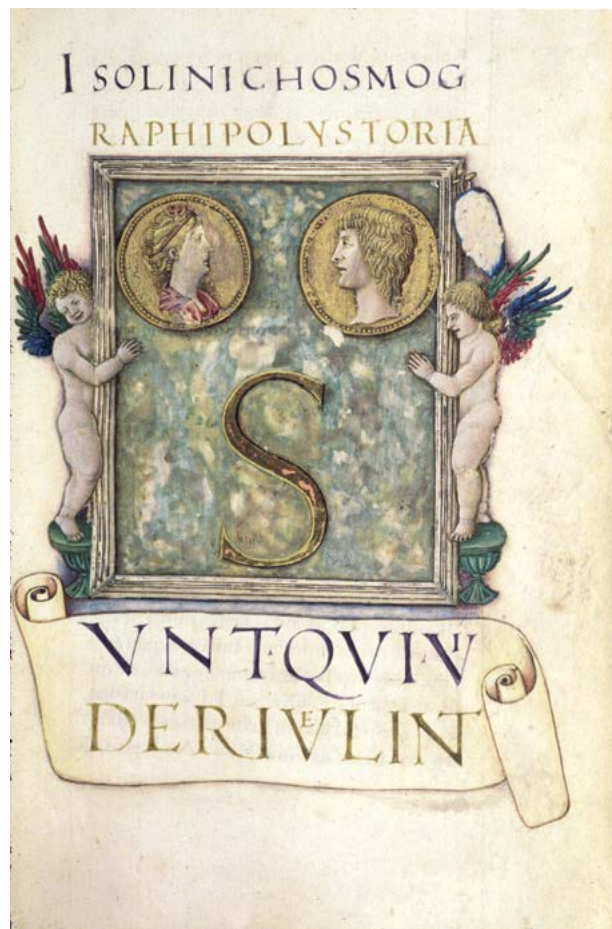 I SOLINICHOSMOG
RAPHIPOLYSTORIA
S
VNT·QVI·VI
DERIVELINT